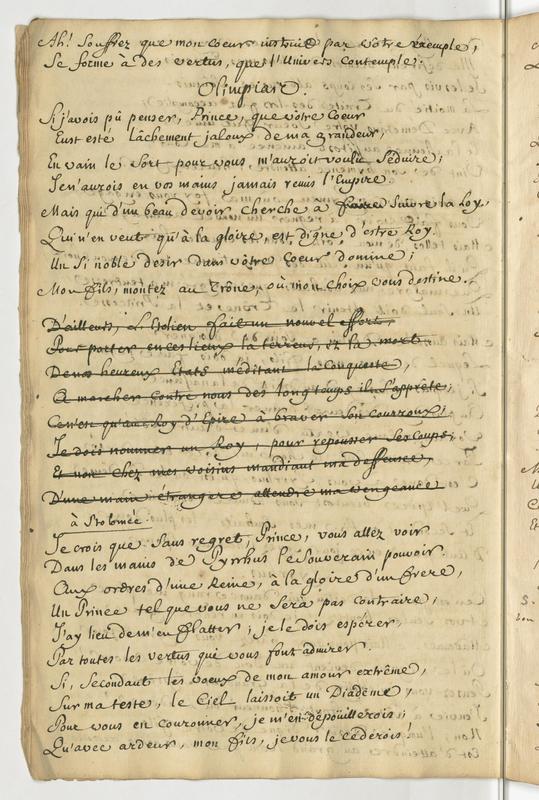 Ah! Souffrez que mon coeur instruit par votre exemple,
Se forme à des vertus, que l'Univers contemple.
Olimpias.
Si j'avois pû penser, Prince, que votre Coeur
Eust esté lâchement jaloux de ma grandeur,
En vain le Sort pour vous m'auroit voulu Séduire;
Je n'aurois en vos mains jamais remis l'Empire.
Mais qui d'un beau devoir cherche à faire Suivre la Loy,
Qui n'en veut qu'à la gloire, est digne d'estre Roy.
Un Si noble desir dans vôtre Coeur domine;
Mon fils, montez au Trône, où mon choix vous destine.
D'ailleurs, l'Etolien fait un nouvel effort,
Pour porter en ces lieux la terreur, et la mort.
De nos heureux Etats méditant la Conqueste,
A marcher Contre nous dès longtemps il S'apprête;
Ce n'est qu'au Roy d'Epire à braver Son Courroux;
Je dois nommer un Roy, pour repousser Ses Coups,
Et non Chez mes voisins mandiant ma deffence,
D'une main étrangere attendre ma vengeance
à Ptolomée.
Je crois que Sans regret, Prince, vous allez voir
Dans les mains de Pyrrhus le Souverain pouvoir.
Aux ordres d'une Reine, à la gloire d'un frere,
Un Prince tel que vous ne Sera pas contraire;
J'ay lieu de m'en flatter; je le dois espérer,
Par toutes les vertus qui vous font admirer.
Si, Secondant les voeux de mon amour extrême,
Sur ma teste, le Ciel laissoit un Diadème,
Pour vous en couronner, je m'en dépoüillerois;
Qu'avec ardeur, mon fils, je vous le céderois!